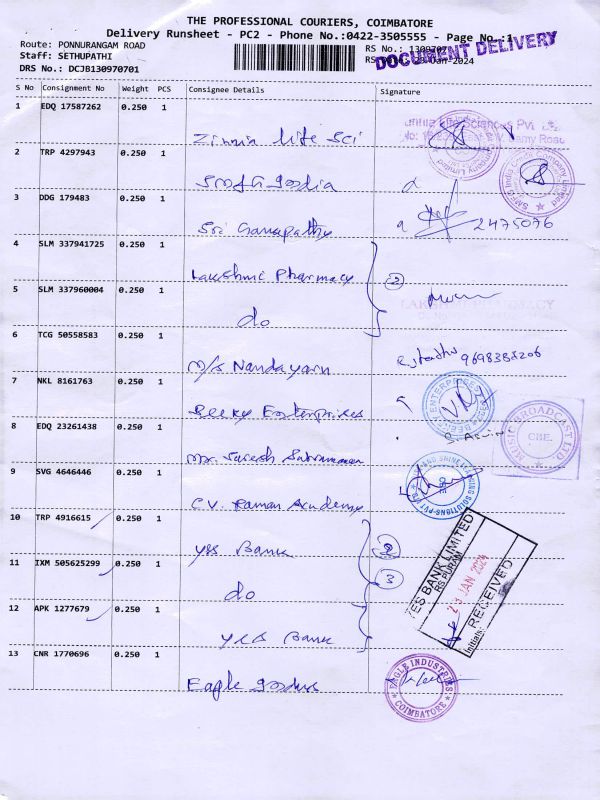 THE PROFESSIONAL COURIERS, COIMBATORE
Delivery Runsheet - PC2 - Phone No.:0422-3505555 - Page No.:1
Route: PONNURANGAM ROAD
Staff: SETHUPATHI
DRS No.: DCJB130970701
RS No.: 1309707
-Jan-2024
DOCUMENT DELIVERY
S No Consignment No Weight PCS Consignee Details Signature
1 EDQ 17587262 0.250 1
Zinnia life Sci
2 TRP 4297943 0.250 1
India
3 DDG 179483 0.250 1
Sri Ganapathy 2475076
4 SLM 337941725 0.250 1
Lakshmi Pharmacy 2
5 SLM 337960004 0.250 1
do
6 TCG 50558583 0.250 1
M/s Nandayarn
7 NKL 8161763 0.250 1
Beeky Enterprises
BEEKY ENTERPRISES
8 EDQ 23261438 0.250 1
Mr. Suresh Subramanian
MUSIC BROADCAST LTD
CBE.
9 SVG 4646446 0.250 1
C.V. Raman Academy
10 TRP 4916615 0.250 1
yes Bank 2
11 IXM 505625299 0.250 1
do 3
12 APK 1277679 0.250 1
yes Bank
YES BANK LIMITED
RS PURAM
JAN 2024
RECEIVED
13 CNR 1770696 0.250 1
Eagle Indus
EAGLE INDUSTRIES
COIMBATORE